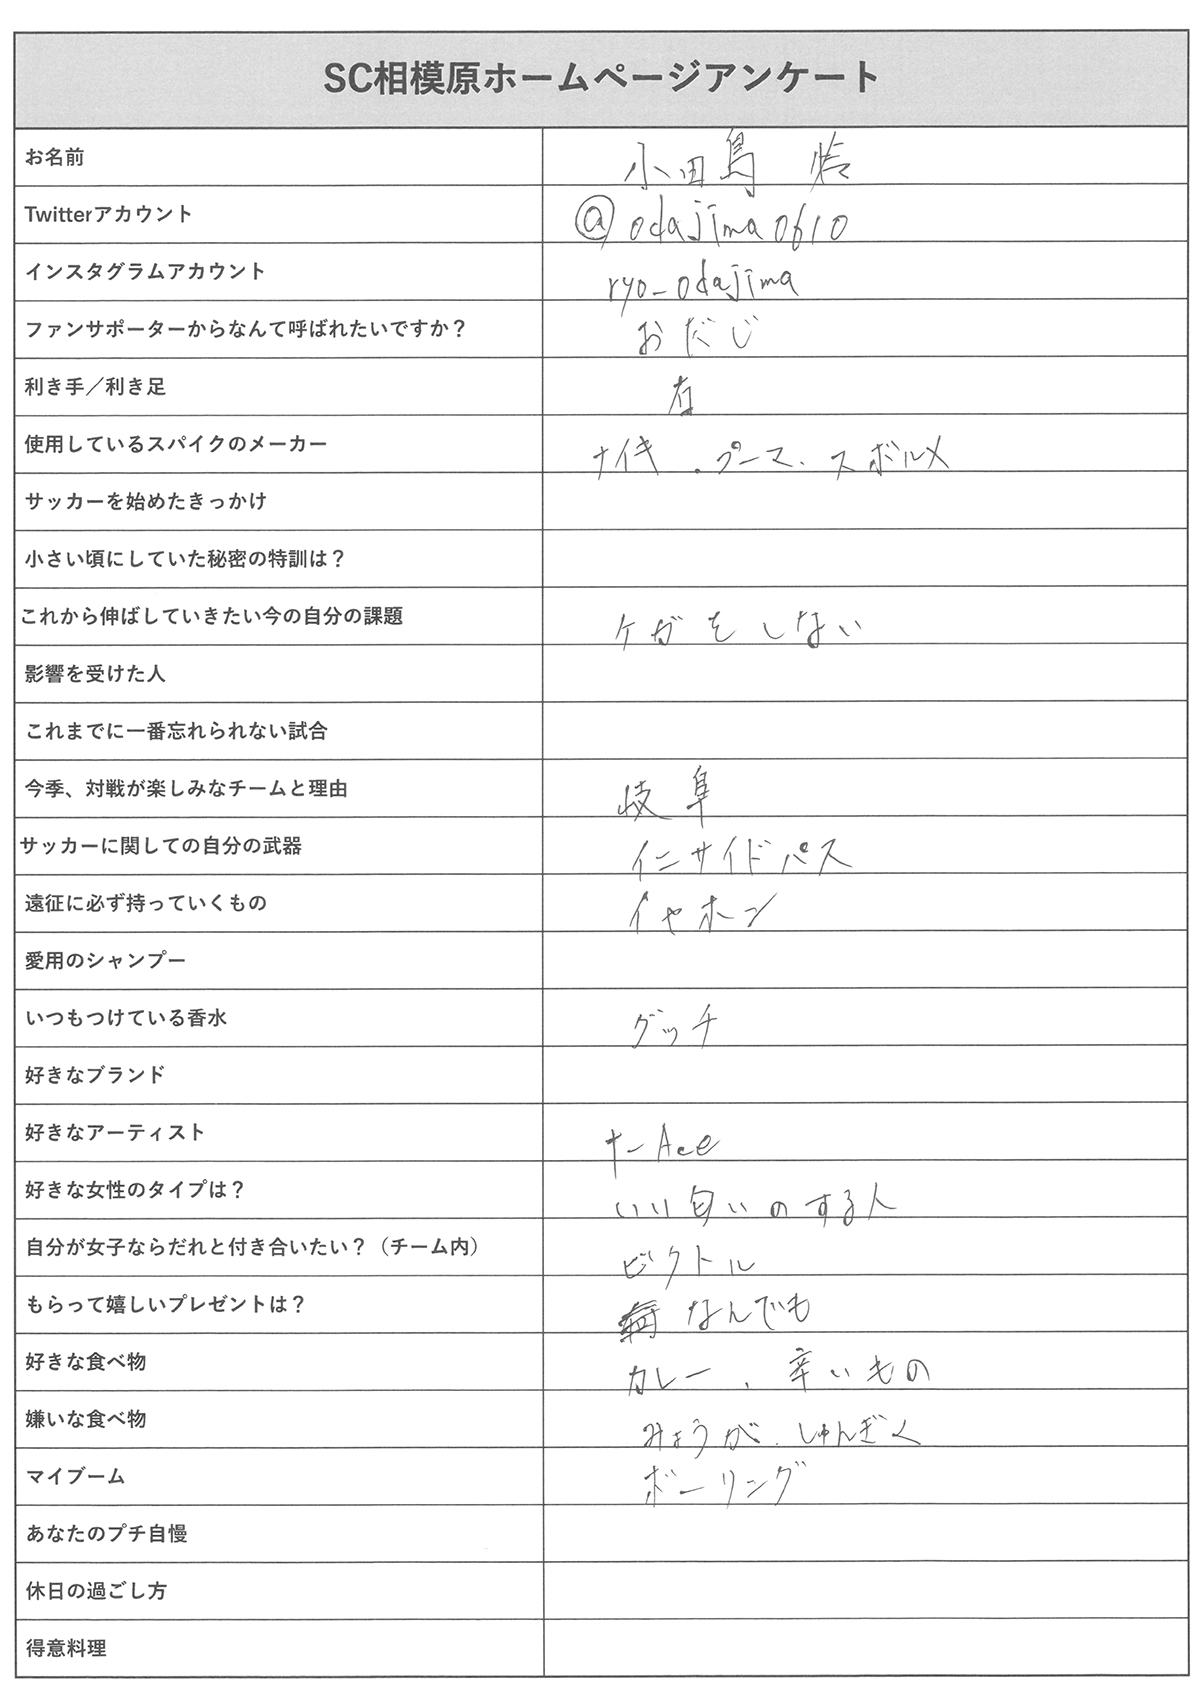 SC相模原ホームページアンケート
お名前 小田島 怜
Twitterアカウント @odajima0610
インスタグラムアカウント ryo_odajima
ファンサポーターからなんて呼ばれたいですか？ おだじ
利き手／利き足 右
使用しているスパイクのメーカー ナイキ.プーマ.スボルメ
サッカーを始めたきっかけ
小さい頃にしていた秘密の特訓は？
これから伸ばしていきたい今の自分の課題 ケガをしない
影響を受けた人
これまでに一番忘れられない試合
今季、対戦が楽しみなチームと理由 岐阜
サッカーに関しての自分の武器 インサイドパス
遠征に必ず持っていくもの イヤホン
愛用のシャンプー
いつもつけている香水 グッチ
好きなブランド
好きなアーティスト t-Ace
好きな女性のタイプは？ いい匂いのする人
自分が女子ならだれと付き合いたい？（チーム内） ビクトル
もらって嬉しいプレゼントは？ なんでも
好きな食べ物 カレー、辛いもの
嫌いな食べ物 みょうが、しゅんぎく
マイブーム ボーリング
あなたのプチ自慢
休日の過ごし方
得意料理